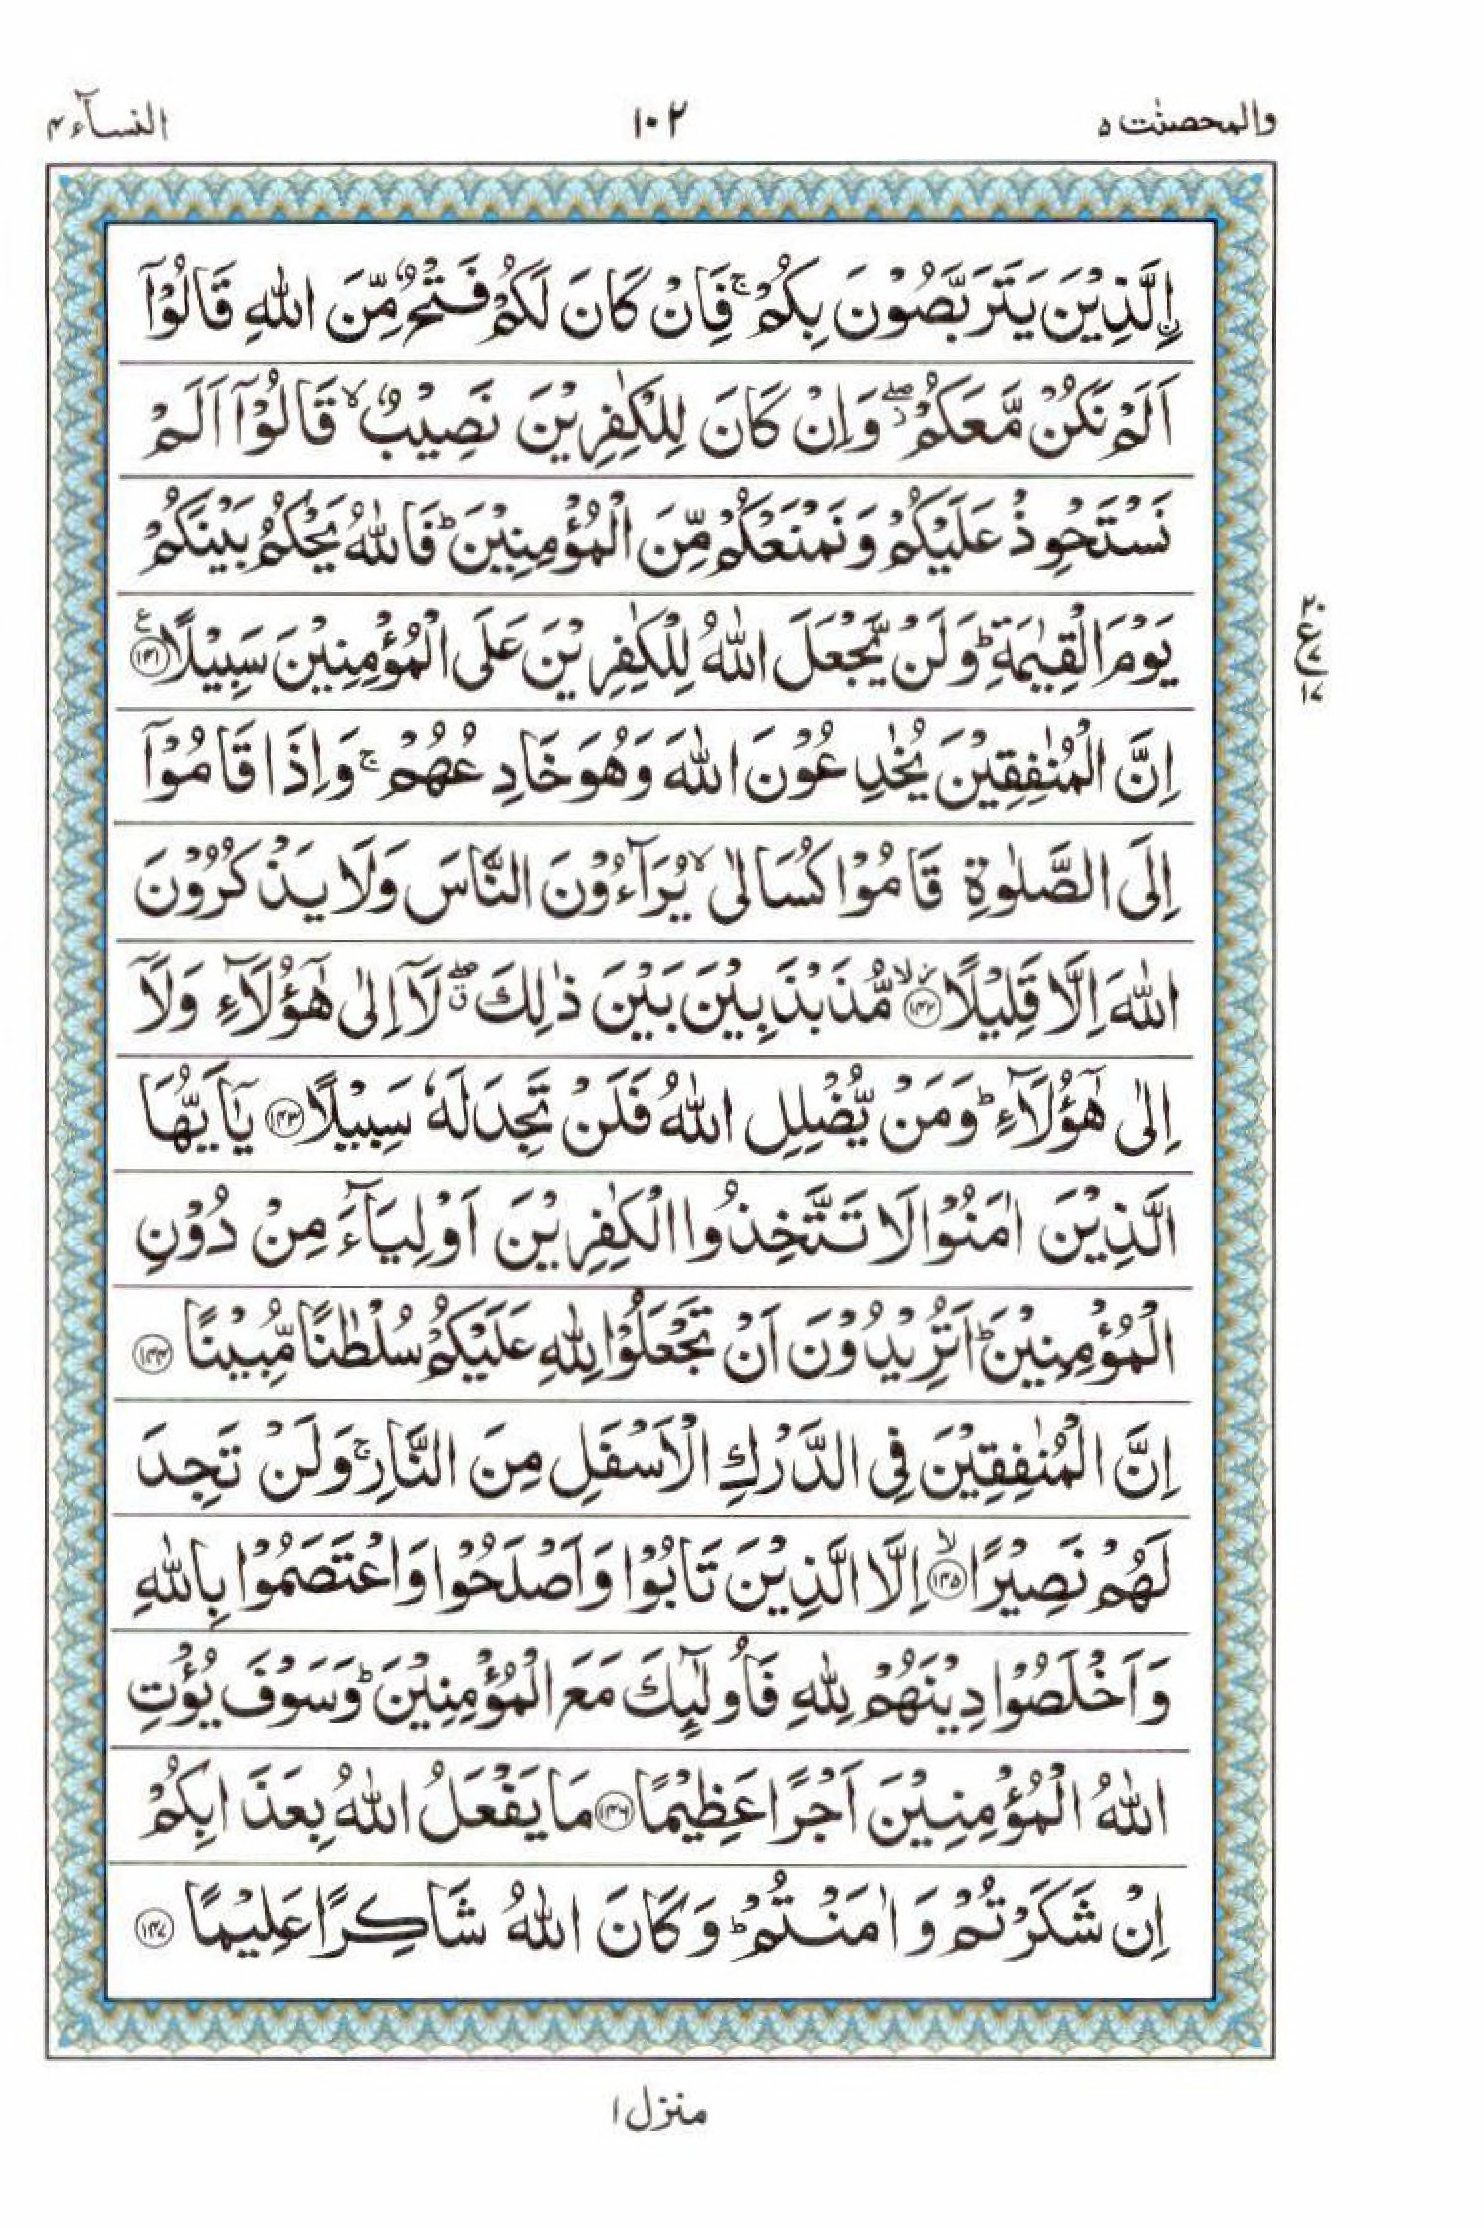 والمحصنٰت ۵ ۱۰۲ النسآء ۴
اۨلَّذِيْنَ يَتَرَبَّصُوْنَ بِكُمْ ۚ فَاِنْ كَانَ لَكُمْ فَتْحٌ مِّنَ اللّٰهِ قَالُوْٓا
اَلَمْ نَكُنْ مَّعَكُمْ ۖؗ وَاِنْ كَانَ لِلْكٰفِرِيْنَ نَصِيْبٌ ۙ قَالُوْٓا اَلَمْ
نَسْتَحْوِذْ عَلَيْكُمْ وَنَمْنَعْكُمْ مِّنَ الْمُؤْمِنِيْنَ ؕ فَاللّٰهُ يَحْكُمُ بَيْنَكُمْ
يَوْمَ الْقِيٰمَةِ ؕ وَلَنْ يَّجْعَلَ اللّٰهُ لِلْكٰفِرِيْنَ عَلَى الْمُؤْمِنِيْنَ سَبِيْلًا ۱۴۱ ع
۲۰ ع ۷ ۱۷
اِنَّ الْمُنٰفِقِيْنَ يُخٰدِعُوْنَ اللّٰهَ وَهُوَ خَادِعُهُمْ ۚ وَاِذَا قَامُوْٓا
اِلَى الصَّلٰوةِ قَامُوْا كُسَالٰى ۙ يُرَآءُوْنَ النَّاسَ وَلَا يَذْكُرُوْنَ
اللّٰهَ اِلَّا قَلِيْلًا ۱۴۲ ۙ مُّذَبْذَبِيْنَ بَيْنَ ذٰلِكَ ۖ ق لَآ اِلٰى هٰٓؤُلَآءِ وَلَآ
اِلٰى هٰٓؤُلَآءِ ؕ وَمَنْ يُّضْلِلِ اللّٰهُ فَلَنْ تَجِدَ لَهٗ سَبِيْلًا ۱۴۳ يٰٓاَيُّهَا
الَّذِيْنَ اٰمَنُوْا لَا تَتَّخِذُوا الْكٰفِرِيْنَ اَوْلِيَآءَ مِنْ دُوْنِ
الْمُؤْمِنِيْنَ ؕ اَتُرِيْدُوْنَ اَنْ تَجْعَلُوْا لِلّٰهِ عَلَيْكُمْ سُلْطٰنًا مُّبِيْنًا ۱۴۴
اِنَّ الْمُنٰفِقِيْنَ فِى الدَّرْكِ الْاَسْفَلِ مِنَ النَّارِ ۚ وَلَنْ تَجِدَ
لَهُمْ نَصِيْرًا ۱۴۵ ۙ اِلَّا الَّذِيْنَ تَابُوْا وَاَصْلَحُوْا وَاعْتَصَمُوْا بِاللّٰهِ
وَاَخْلَصُوْا دِيْنَهُمْ لِلّٰهِ فَاُولٰٓئِكَ مَعَ الْمُؤْمِنِيْنَ ؕ وَسَوْفَ يُؤْتِ
اللّٰهُ الْمُؤْمِنِيْنَ اَجْرًا عَظِيْمًا ۱۴۶ مَا يَفْعَلُ اللّٰهُ بِعَذَابِكُمْ
اِنْ شَكَرْتُمْ وَاٰمَنْتُمْ ؕ وَكَانَ اللّٰهُ شَاكِرًا عَلِيْمًا ۱۴۷
منزل ۱